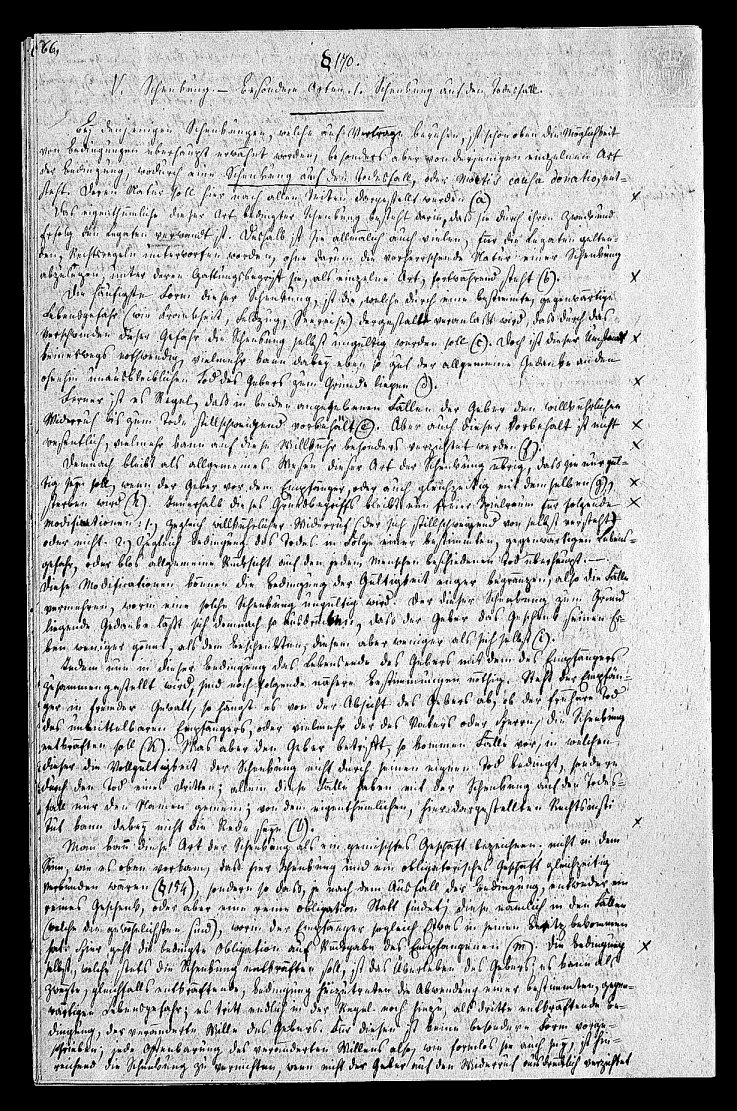 86.
§ 170.
V. Schenkung. — Besondere Arten. 1. Schenkung auf den Todesfall.
Bey denjenigen Schenkungen, welche auf Vertrag beruhen, ist schon oben die Möglichkeit
von Bedingungen überhaupt erwähnt worden, besonders aber von derjenigen einzelnen Art
der Bedingung, wodurch eine Schenkung auf den Todesfall, oder mortis causa donatio, ent-
steht. Deren Natur soll hier nach allen Seiten dargestellt werden (a)
Das eigenthümliche dieser Art bedingter Schenkung besteht darin, daß sie durch ihren Zweck und
Erfolg den Legaten verwandt ist. Deshalb ist sie allmälich auch vielen, für die Legaten gelten-
den, Rechtsregeln unterworfen worden, ohne darum die vorherrschende Natur einer Schenkung
abzulegen, unter deren Gattungsbegriff sie, als einzelne Art, fortwährend steht (b).
Die häufigste Form dieser Schenkung ist die, welche durch eine bestimmte, gegenwärtige
Lebensgefahr (wie Krankheit, Feldzug, Seereise) dergestalt veranlaßt wird, daß durch das
Verschwinden dieser Gefahr die Schenkung selbst ungültig werden soll (c). Doch ist dieser Umstand
keineswegs nothwendig, vielmehr kann dabey eben so gut der allgemeine Gedanke an den
ohnehin unausbleiblichen Tod des Gebers zum Grunde liegen (d).
Ferner ist es Regel, daß in beiden angegebenen Fällen der Geber den willkührlichen
Widerruf bis zum Tode stillschweigend vorbehält (e). Aber auch dieser Vorbehalt ist nicht
wesentlich, vielmehr kann auf diese Willkühr besonders verzichtet werden (f).
Demnach bleibt als allgemeines Wesen dieser Art der Schenkung übrig, daß sie nur gül-
tig seyn soll, wenn der Geber vor dem Empfänger, oder auch gleichzeitig mit demselben (g),
sterben wird (h). Innerhalb dieses Grundbegriffs bleibt nun freier Spielraum für folgende
Modificationen: 1. Zugleich willkührlicher Widerruf (der sich stillschweigend von selbst versteht)
oder nicht. 2. Zugleich Bedingung des Todes in Folge einer bestimmten, gegenwärtigen Lebens-
gefahr, oder blos allgemeine Rücksicht auf den jedem Menschen beschiedenen Tod überhaupt. —
Diese Modificationen können die Bedingung der Gültigkeit enger begränzen, also die Fälle
vermehren, worin eine solche Schenkung ungültig wird. Der dieser Schenkung zum Grund
liegende Gedanke läßt sich demnach so ausdrücken, daß der Geber das Geschenk seinen Er-
ben weniger gönnt, als dem Beschenkten, diesem aber weniger als sich selbst (i).
Indem nun in dieser Bedingung das Lebensende des Gebers mit dem des Empfängers
zusammengestellt wird, sind noch folgende nähere Bestimmungen nöthig. Steht der Empfän-
ger in fremder Gewalt, so hängt es von der Absicht des Gebers ab, ob der frühere Tod
des unmittelbaren Empfängers, oder vielmehr der des Vaters oder Herrn, die Schenkung
entkräften soll (k). Was aber den Geber betrifft, so kommen Fälle vor, in welchen
dieser die Vollgültigkeit der Schenkung nicht durch seinen eigenen Tod bedingt, sondern
durch den Tod eines Dritten; allein diese Fälle haben mit der Schenkung auf den Todes-
fall nur den Namen gemein; von dem eigenthümlichen, hier dargestellten Rechtsinsti-
tut kann dabey nicht die Rede seyn (l).
Man kann diese Art der Schenkung als ein gemischtes Geschäft bezeichnen: nicht in dem
Sinn, wie es oben vorkam, daß hier Schenkung und ein obligatorisches Geschäft gleichzeitig
verbunden wären (§ 154), sondern so daß, je nach dem Ausfall der Bedingung, entweder ein
reines Geschenk, oder aber eine reine Obligation Statt findet; diese nämlich in den Fällen
(welche die gewöhnlichsten sind), worin der Empfänger sogleich Etwas in seinen Besitz bekommen
hat. Hier geht die bedingte Obligation auf Rückgabe des Empfangenen (m). Die Bedingung
selbst, welche stets die Schenkung entkräften soll, ist das Überleben des Gebers; es kann als
zweyte, gleichfalls entkräftende, Bedingung hinzutreten die Abwendung einer bestimmten, gegen-
wärtigen Lebensgefahr; es tritt endlich in der Regel noch hinzu, als dritte entkräftende Be-
dingung, der veränderte Wille des Gebers. Für diesen ist keine besondere Form vorge-
schrieben; jede Offenbarung des veränderten Willens also, wie formlos sie auch sey, ist hin-
reichend die Schenkung zu vernichten, wenn nicht der Geber auf den Widerruf ausdrücklich verzichtet